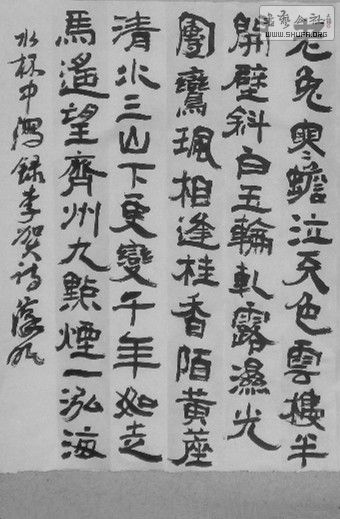 老兔寒蟾泣天色雲樓半
開壁斜白玉輪軋露濕光
團鸞珮相逢桂香陌黃塵
清水三山下更變千年如走
馬遙望齊州九點煙一泓海
水杯中瀉錄李賀詩
WWW.SHUFA.ORG